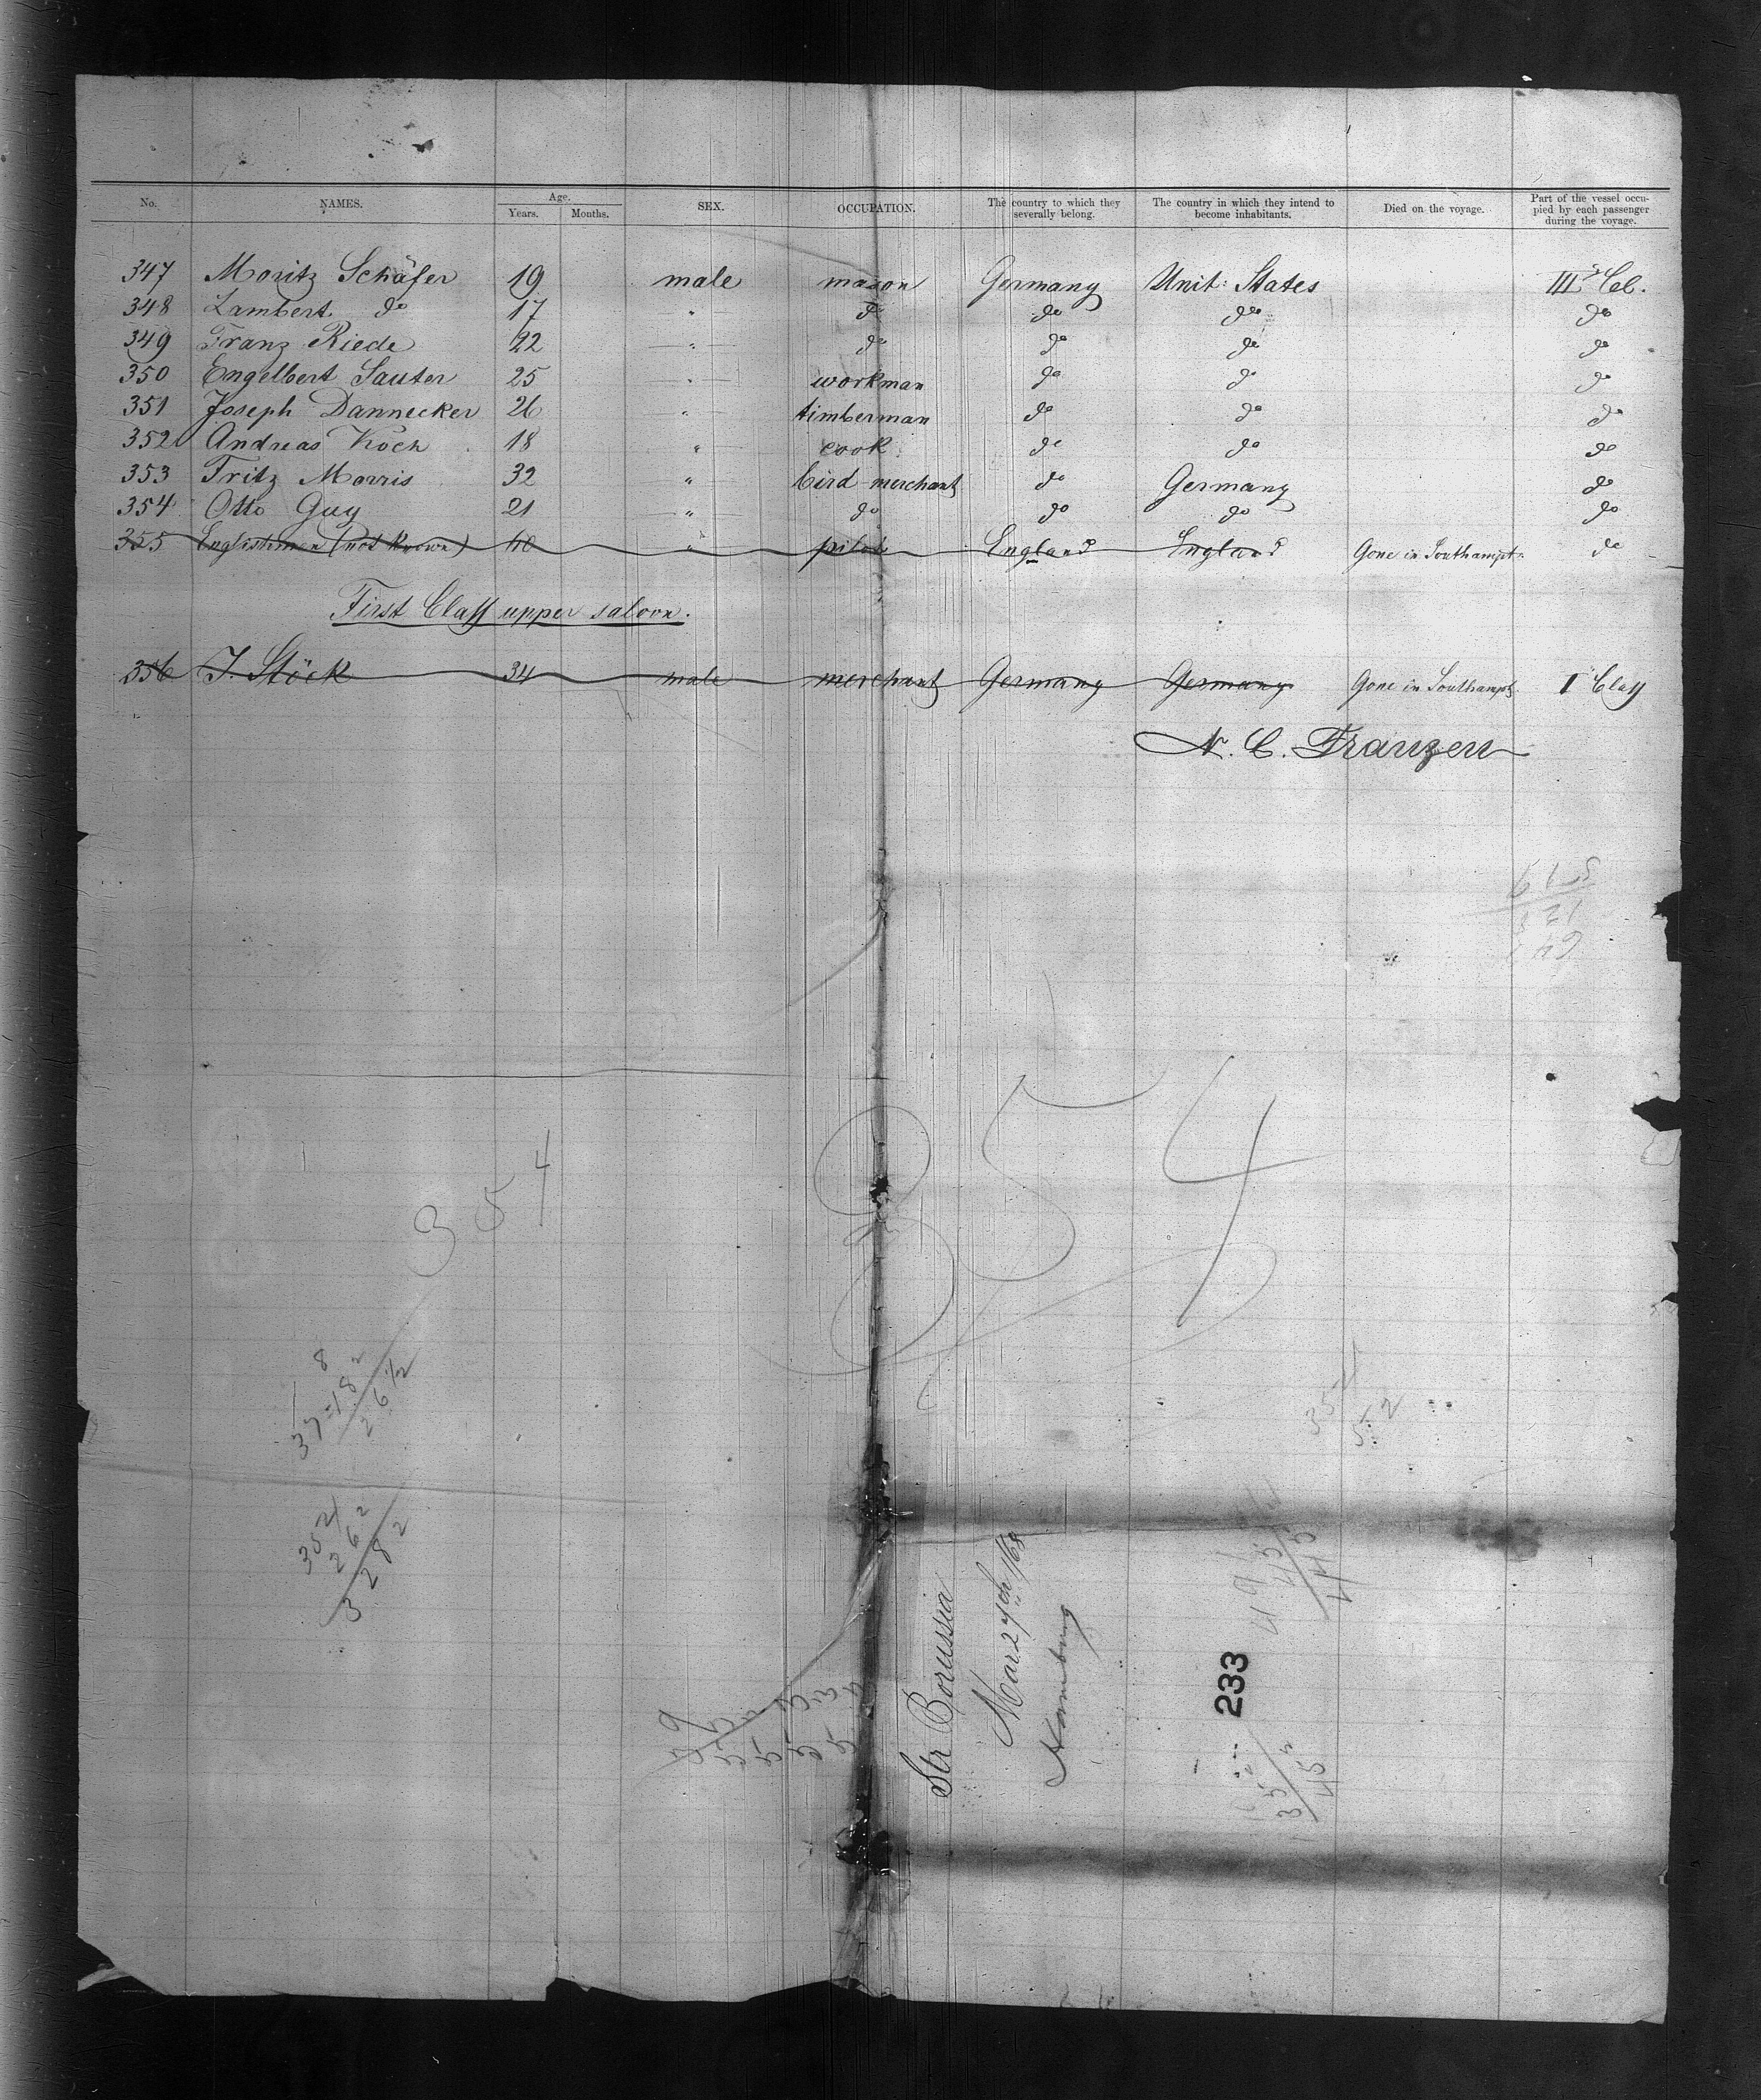 No. NAMES. Age. Years. Months. SEX. OCCUPATION. The country to which they severally belong. The country in which they intend to become inhabitants. Died on the voyage. Part of the vessel occupied by each passenger during the voyage.
347 Moritz Schäfer 19 male mason Germany Unit: States III Cl.
348 Lambert do 17 " do do do do
349 Franz Riede 22 " do do do do
350 Engelbert Sauter 25 " workman do do do
351 Joseph Dannecker 26 " timberman do do do
352 Andreas Koch 18 " cook do do do
353 Fritz Morris 32 " bird merchant do Germany do
354 Otto Guy 21 " do do do do
355 Englishman (not known) 40 " pilot England England Gone in Southampt. do
First Class upper saloon.
356 J. Stöck 34 male merchant Germany Germany Gone in Southampt. I Class
N. C. Franzen
354
354
Str Borussia
Mar 27th 1868
Hamburg
233